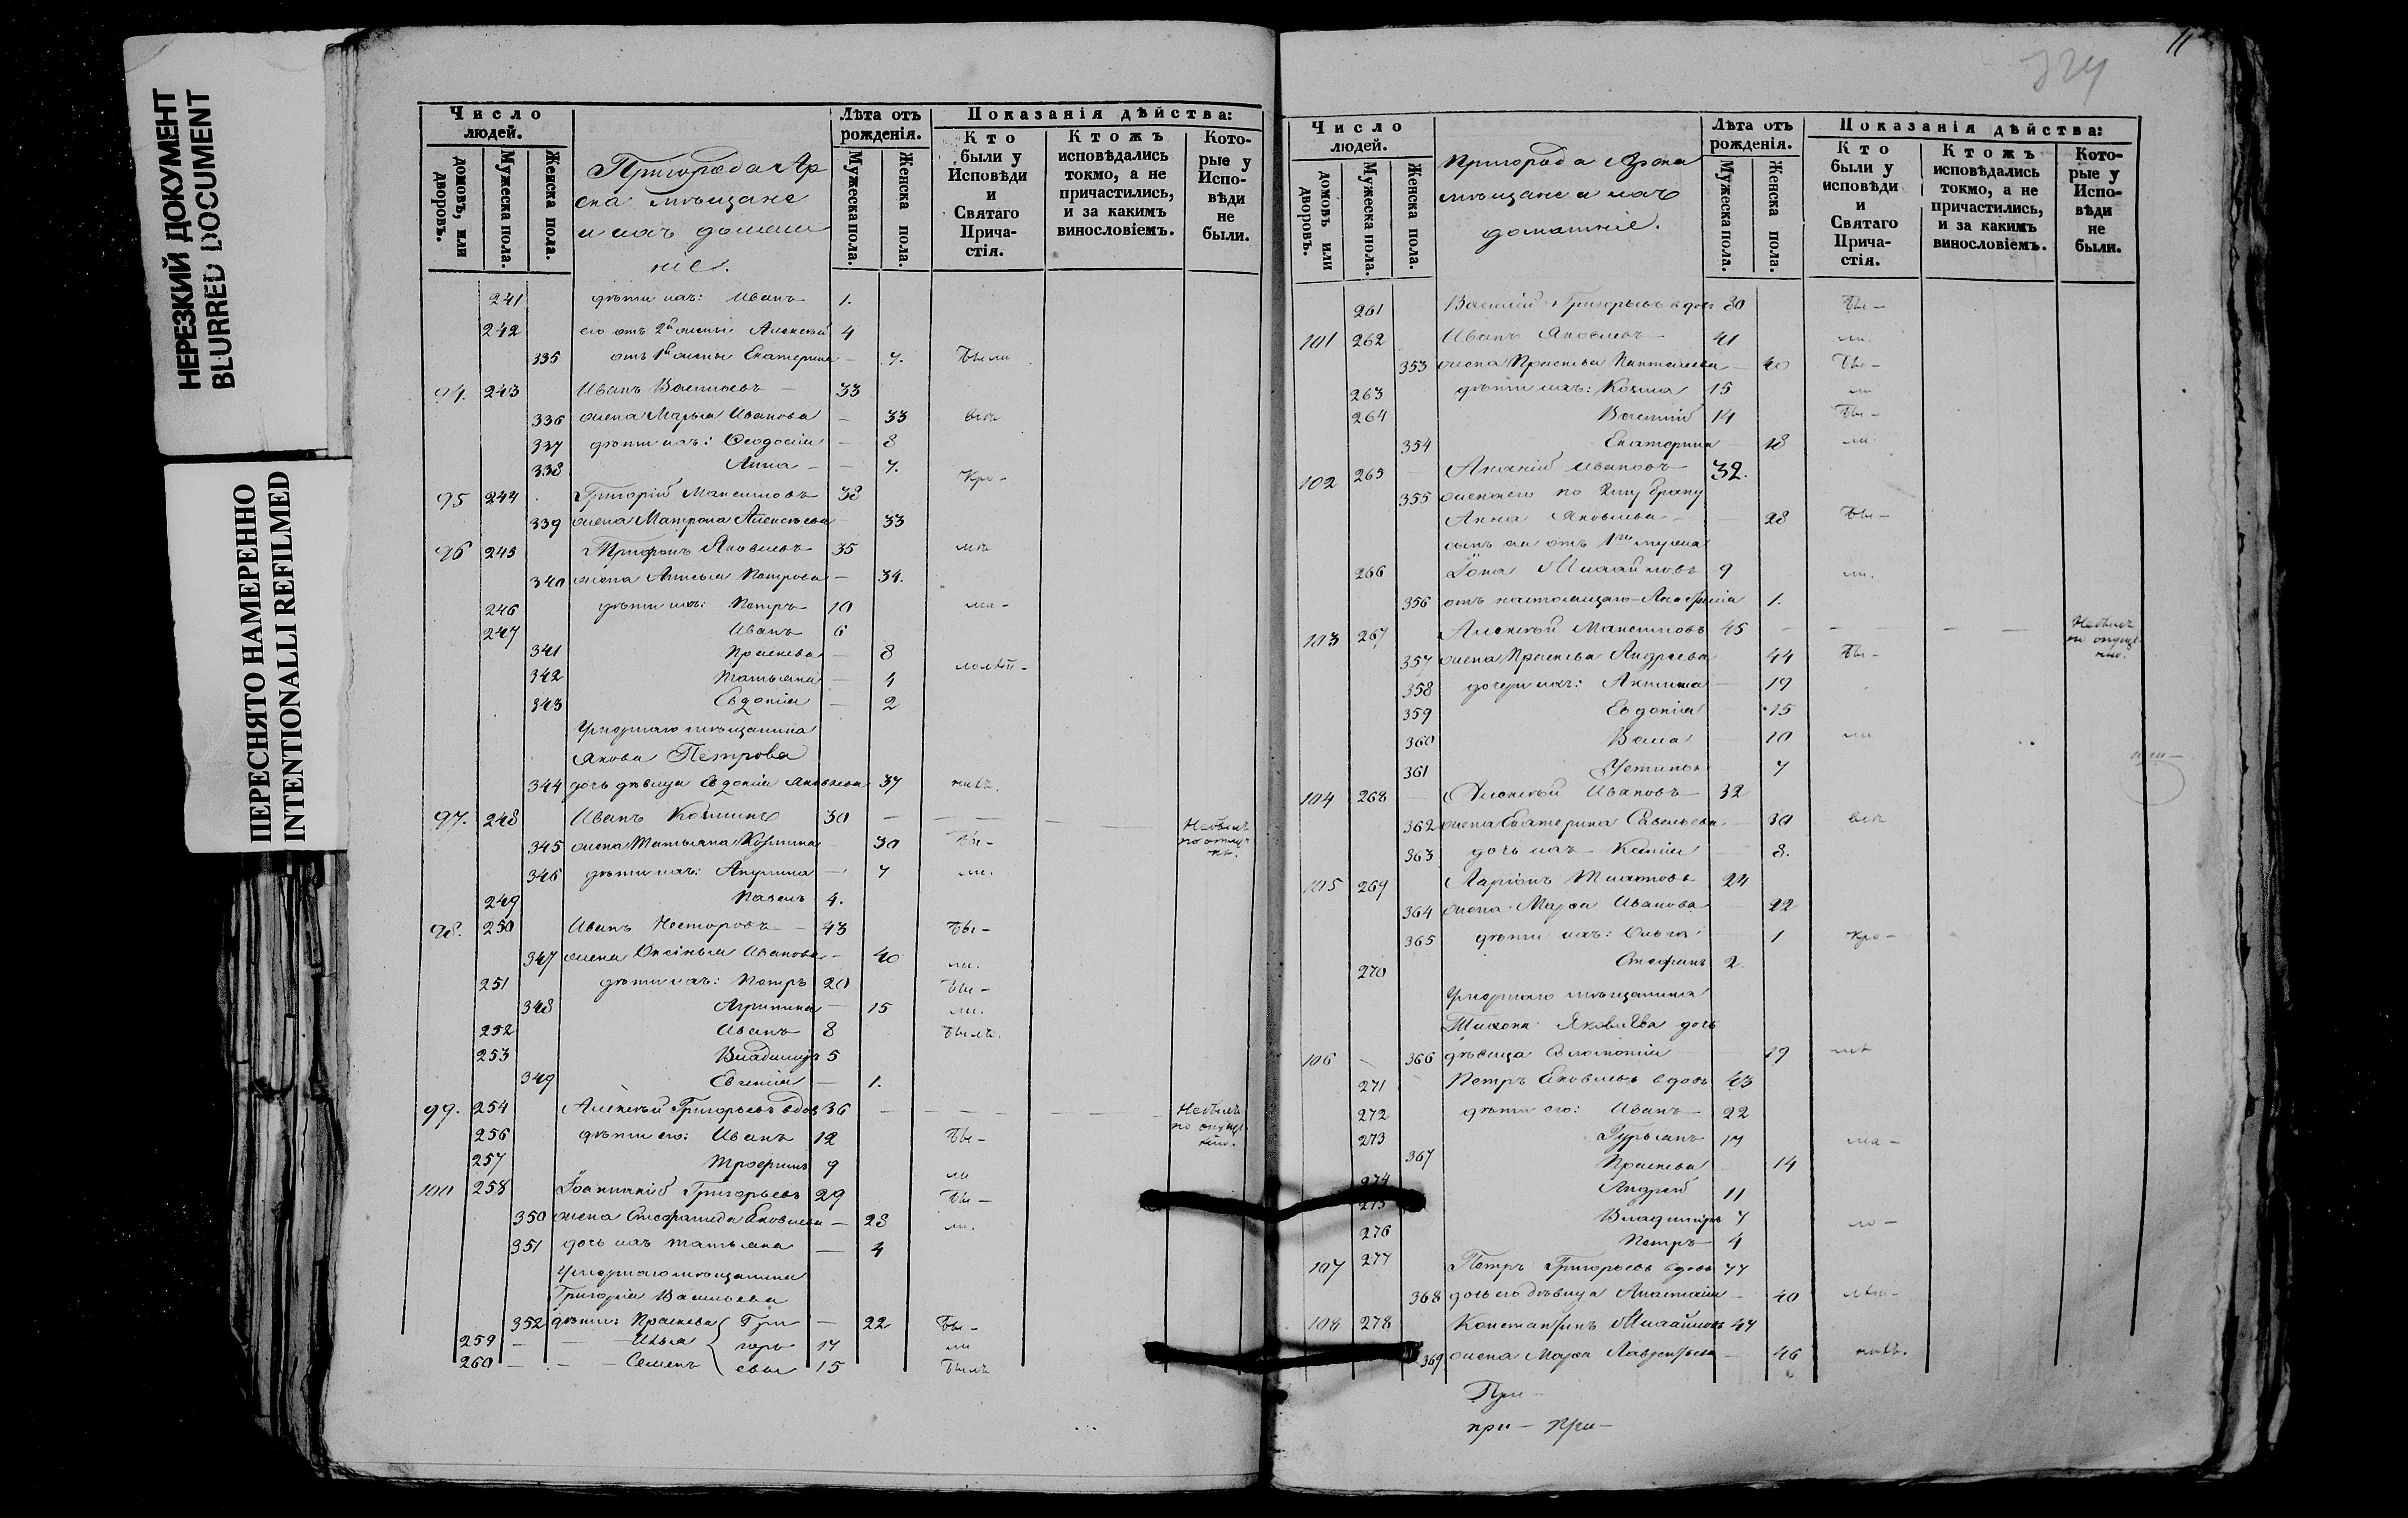 НЕРЕЗКИЙ ДОКУМЕНТ
BLURRED DOCUMENT
ПЕРЕСНЯТО НАМЕРЕННО
INTENTIONALLI REFILMED
Число людей.
домовъ, или дворовъ.
Мужеска пола.
Женска пола.
Пригорода Ар
ска мѣщане
и ихъ домаш
ніе.
Лѣта отъ рожденія.
Мужеска пола.
Женска пола.
Показанія дѣйства:
Кто были у Исповѣди и Святаго Прича-стія.
Ктожъ исповѣдались токмо, а не причастились, и за какимъ винословіемъ.
Кото-рые у Испо-вѣди не были.
241 дѣти ихъ: Иванъ 1.
242 его отъ 2й жены Алексѣй 4
335 отъ 1й жены Екатерина — 7. Были
94. 243 Иванъ Васильевъ — 33
336 жена Марья Иванова — 33 всѣ
337 дѣти ихъ: Ѳеодосія — 8
338 Анна — — 7.
Кро-
95 244 Григорій Максимовъ 38
339 жена Матрона Алексѣева 33
96 245 Трифонъ Яковлевъ 35
340 жена Петрова — 34.
246 дѣти ихъ: Петръ 10 ма-
247 Иванъ 6
341 Прасковья — 8
342 Татьяна — 4
343 Евдокія — 2
Умершаго мѣщанина
Якова Петрова
344 дочь дѣвица Евдокія Яковлева 37
97. 248 Иванъ Козминъ 30 — — — Небылъ
345 жена Татьяна Козмина 30 Бы-
346 дѣти ихъ: Акулина — 7 ли.
249 Павелъ 4.
98. 250 Иванъ Несторовъ — 43 Бы-
347 жена Аксинья Иванова — 40 ли.
251 дѣти ихъ: Петръ 20 Бы-
348 Агрипина — 15 ли.
252 Иванъ 8 Былъ.
253 Владимиръ 5
349 Евгенія — 1.
99. 254 Алексѣй Григорьевъ вдов 36 — — — Небылъ
256 дѣти его: Иванъ 12 Бы-
257 Трофимъ 9 ли
100 258 Іоанникій Григорьевъ 29 Бы-
350 жена Стефанида Яковлева — 28 ли.
351 дочь ихъ Татьяна — 4
Умершаго мѣщанина
Григорія Васильева
352 дѣти: Прасковья Гри — 22 Бы-
259 — Илья горь 17 ли
260 — Семенъ евы 15 Былъ
11
324
Число людей.
домовъ или дворовъ.
Мужеска пола.
Женска пола.
Пригорода Арска
мѣщане и ихъ
домашніе.
Лѣта отъ рожденія.
Мужеска пола.
Женска пола.
Показанія дѣйства:
Кто были у исповѣди и Святаго Прича-стія.
Ктожъ исповѣдались токмо, а не причастились, и за какимъ винословіемъ.
Кото-рые у Испо-вѣди не были.
261 Василій Григорьевъ вдов 30 Бы-
101 262 Иванъ Яковлевъ 41 ли.
353 жена Прасковья — 40 Бы-
263 дѣти ихъ: Козма 15 ли
264 Василій 14 Бы-
354 Екатерина 18 ли.
102 265 Ананій Ивановъ 32.
355 жена его по 2му браку
Анна Яковлева 28 Бы-
сынъ ея отъ 1го мужа
266 Іона Михайловъ 9 ли.
356 отъ настоящаго 1.
103 267 Алексѣй Максимовъ 45 — — — Небылъ
357 жена Прасковья Андреева 44 Бы-
358 дочери ихъ: 19
359 Евдокія 15
360 Васса 10 ли
361 Устинья 7
104 268 Алексѣй Ивановъ 32
362 жена Екатерина Савельева — 30 всѣ
363 дочь ихъ — Ксенія 8.
105 269 Ларіонъ Тихоновъ 24
364 жена Марѳа Иванова 22
365 дѣти ихъ: Ольга 1 Кро-
270 Стефанъ 2.
Умершаго мѣщанина
Тихона Яковлева дочь
106 — 366 дѣвица 19
271 Петръ Яковлевъ вдовъ 43
272 дѣти его: Иванъ 22
273 17 ма-
367 Прасковья 14
274 Андрей 11
275 Владимиръ 7 ло-
276 Петръ 4
107 277 Петръ Григорьевъ вдовъ 77
368 дочь его дѣвица Анастасія — 40 лѣт-
108 278 Константинъ Михайловъ 47
369 жена Марѳа Лаврентьева 46 нихъ.
При-
при- при-